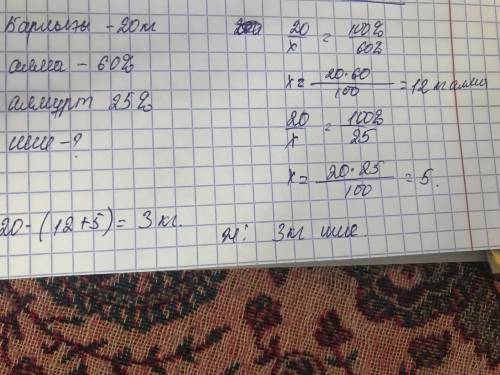 Барлығы - 20 кг
алма - 60%
алмұрт 25%
шие - ?
20/x = 100%/60%
x = 20·60/100 = 12 кг алма
20/x = 100%/25
x = 20·25/100 = 5.
20 - (12+5) = 3 кг.
3 кг шие.